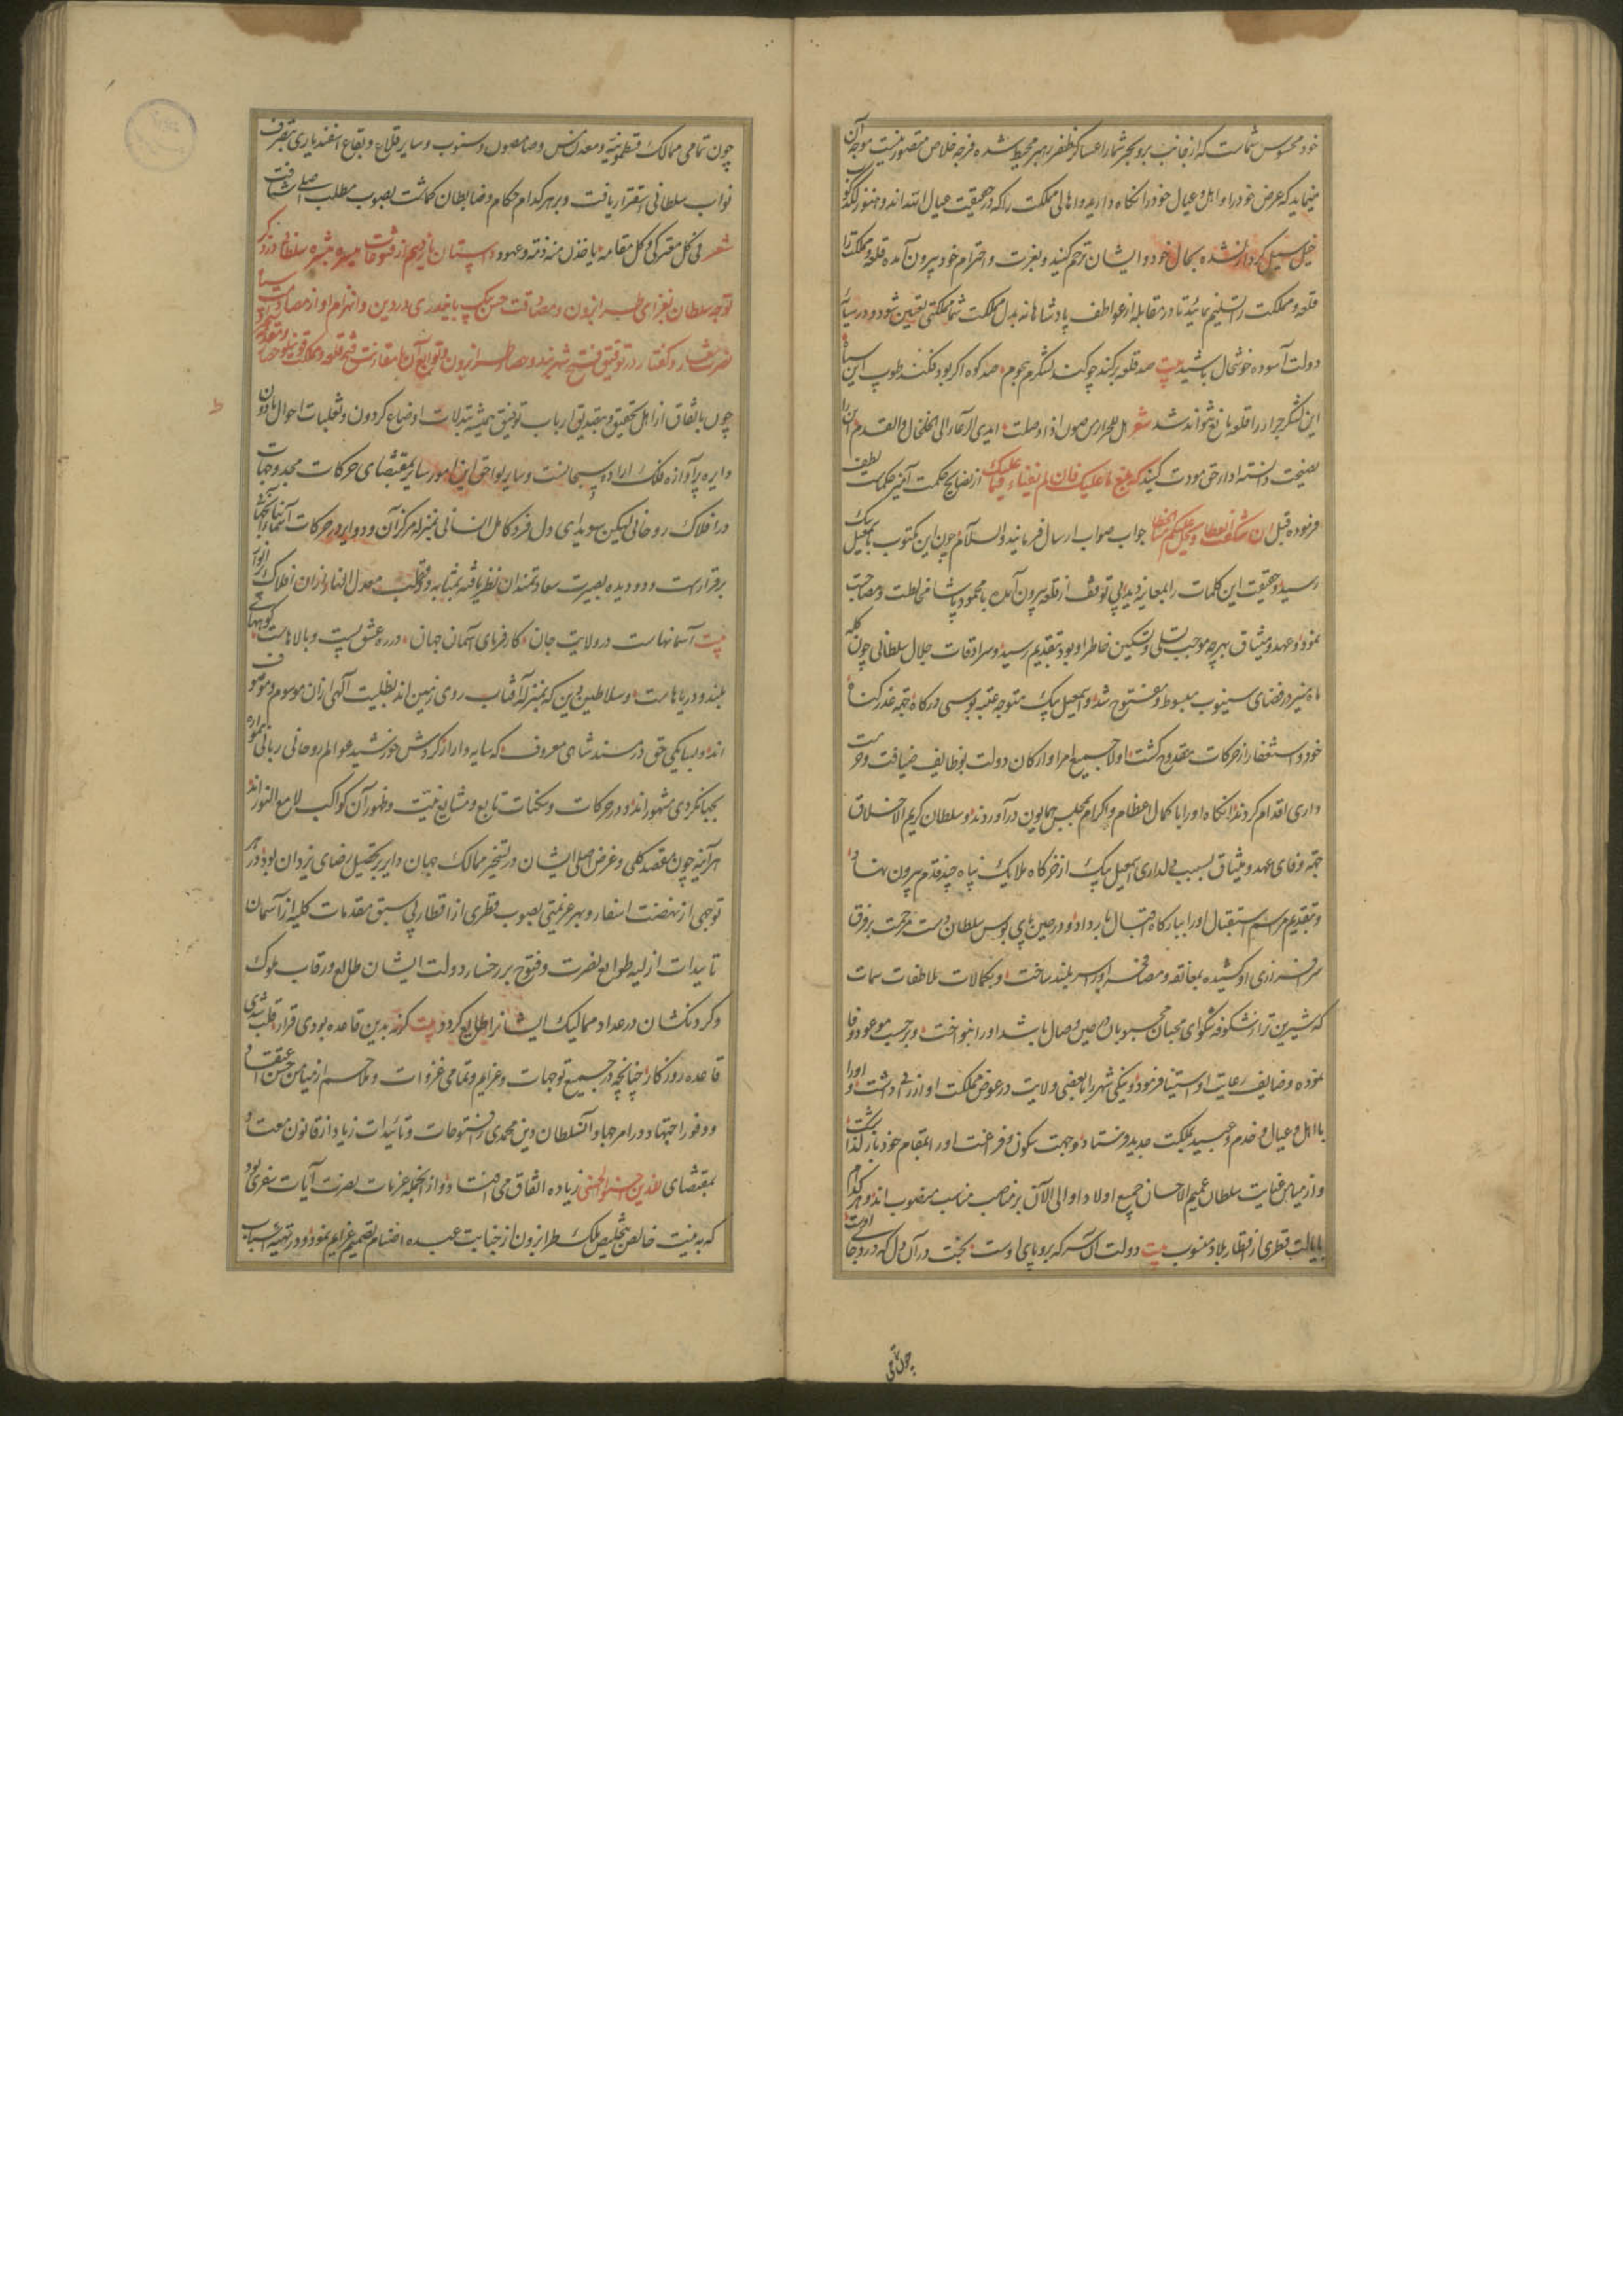 خود محسوس شماست که از جانب بر و بحر شما را عساکر ظفر رهبر محیط شده و فرجه خلاص متصور نیست موجه آن
مینماید که عرض خود را و اهل و عیال خود را نگاه دارید و اهالی مملکت را که در حقیقت عیال الله اند و هنوز لگدکوب
خیل سیل کردار نشده بحال خود و ایشان ترحم کنید و بعزت و احترام خود بیرون آمده قلعه و مملکت را
قلعه و مملکت را تسلیم نمائید تا در مقابله از عواطف پادشاهانه بدل مملکت شما مملکتی تعیین شود و در سایه
دولت آسوده خوشحال باشید بیت صد قلعه برکند چو کند لشکرم هجوم صد کوه اگر بود فکند طوپ این سپاه
این لشکر جرار را قلعه مانع نتواند شد شعر
نصیحت دانسته ادا حق مودت کنید از نصایح حکمت آمیز حکمای لطیف
فرموده قبل جواب صواب ارسال فرمایند والسلام چون این مکتوب باسمعیل بیک
رسید و حقیقت این کلمات را بمعاینه دید بی توقف از قلعه بیرون آمده با محمود پاشا مخالطت و مصاحبت
نمود و عهد و میثاق بهرچه موجب تسلی و تسکین خاطر او بود بتقدیم رسید و سرادقات جلال سلطانی چون کله
ماه منیر در فضای سینوب مبسوط و مفتوح شد و اسمعیل بیک متوجه عتبه بوسی درگاه جهة عذر گناه
خود و استغفار از حرکات مقدوح گشت اولا جمیع امرا و ارکان دولت بوظایف ضیافت و حرمت
داری اقدام کردند آنگاه او را با کمال اعظام و اکرام بمجلس همایون درآوردند و سلطان کریم الاخلاق
جهة وفای عهد و میثاق بسبب دلداری اسمعیل بیک از خرگاه ملایک پناه چند قدم بیرون نهاد
و بتقدیم مراسم استقبال او را ببارگاه اقبال بار داد و در حین پای بوس سلطان دست مرحمت بر فرق
سرافرازی او کشیده بمعانقه و مصافحه او را سربلند ساخت و بمکالات ملاطفات سمات
که شیرین تر از شکوفه شگوای محبان محبوبان در حین وصال باشد او را بنواخت و بر حسب موعود وفا
نموده وظایف رعایت او استیفا فرمود و نیکی شهر را با بعضی ولایت در عوض مملکت او ارزانی داشت و او را
با اهل و عیال و خدم و عبید بمملکت جدید فرستاد و جهت سکون و فرغت او را بمقام خود بازگذاشت
و از میامن عنایت سلطان عمیم الاحسان جمیع اولاد او الی الآن بر مناصب مناسب منصوب اند و هر کدام
بایالت قطری از اقطار بلاد منسوب بیت دولت آن سر که بر و پای اوست بخت در آن دل که درو جای اوست
چون تمامی
چون تمامی ممالک قسطمونیه و معدن مس و صامصون و سنوب و سایر قلاع و بقاع اسفندیاری بتصرف
نواب سلطانی استقرار یافت و بر هر کدام حکام و ضابطان گماشت بصوب مطلب اصلی شتافت
شعر فی کل معترک و کل مقامه یاخذن منه ذمة و عهود داستان یازدهم از فتوحات میسره مبشره سلطانی در ذکر
توجه سلطان بغزای طرابزون و مصادقت حسن بیک بایندری
نصرت شعار و گفتار در توفیق فتح شهربند و حصار طرابزون و توابع آن
چون باتفاق ارباب اهل تحقیق و بتصدیق ارباب توفیق همیشه تبدلات اوضاع گردون و تقلبات احوال
دایره پرآوازه فلک اراده سبحانیست و سایر لواحق این امور سایر بمقتضای حرکات مجدد جهات
در افلاک روحانی لیکن سویدای دل فرد کامل انسانی بمنزله مرکز آن و دوایر در حرکات آسمانها
برقرارست و دو دیده بصیرت سعادتمندان نظریافته بمثابه دو قطب معدل النهار از آن افلاک پر انوار
بیت آسمانهاست در ولایت جان کارفرمای آسمان جهان در ره عشق پست و بالاهاست کوههای
بلند و دریاهاست و سلاطین دین که بمنزله آفتاب روی زمین اند بظلیت الهی از آن موسوم و موصوف
اند و بسایگی حق در مسند شاهی معروف که سایه وار از گردش خورشید عوالم روحانی ربانی همواره
بجهانگردی مشهور اند و در حرکات و سکنات تابع و مشایع نیت و ظهور آن کواکب لامع النور اند
هر آینه چون مقصد کلی و غرض اصلی ایشان در تسخیر ممالک جهان دایر بر تحصیل رضای یزدان بود در هر
توجهی از نهضت اسفار و بهر عزیمتی بصوب قطری از اقطار بی سبق مقدمات کلیه از آسمان
تاییدات ازلیه طوالع نصرت و فتوح بر رخسار دولت ایشان طالع و رقاب ملوک
و گردنکشان در عداد ممالیک ایشان طالع گردد بیت گرنه بدین قاعده بودی قرار قلب شدی
قاعده روزگار چنانچه در جمیع توجهات و عزایم و تمامی غزوات و ملاحم از میامن حسن اعتقاد
و وفور اجتهاد در امر جهاد آن سلطان دین محمدی فتوحات و تائیدات زیاد از قانون معتاد
بمقتضای للذین احسنوا الحسنی و زیاده اتفاق می افتاد و از آنجمله عزمات نصرت آیات سفری بود
که به نیت خالص بتخلیص ملک طرابزون از خباثت عبده اصنام تصمیم عزایم نمود و در تهیه اسباب